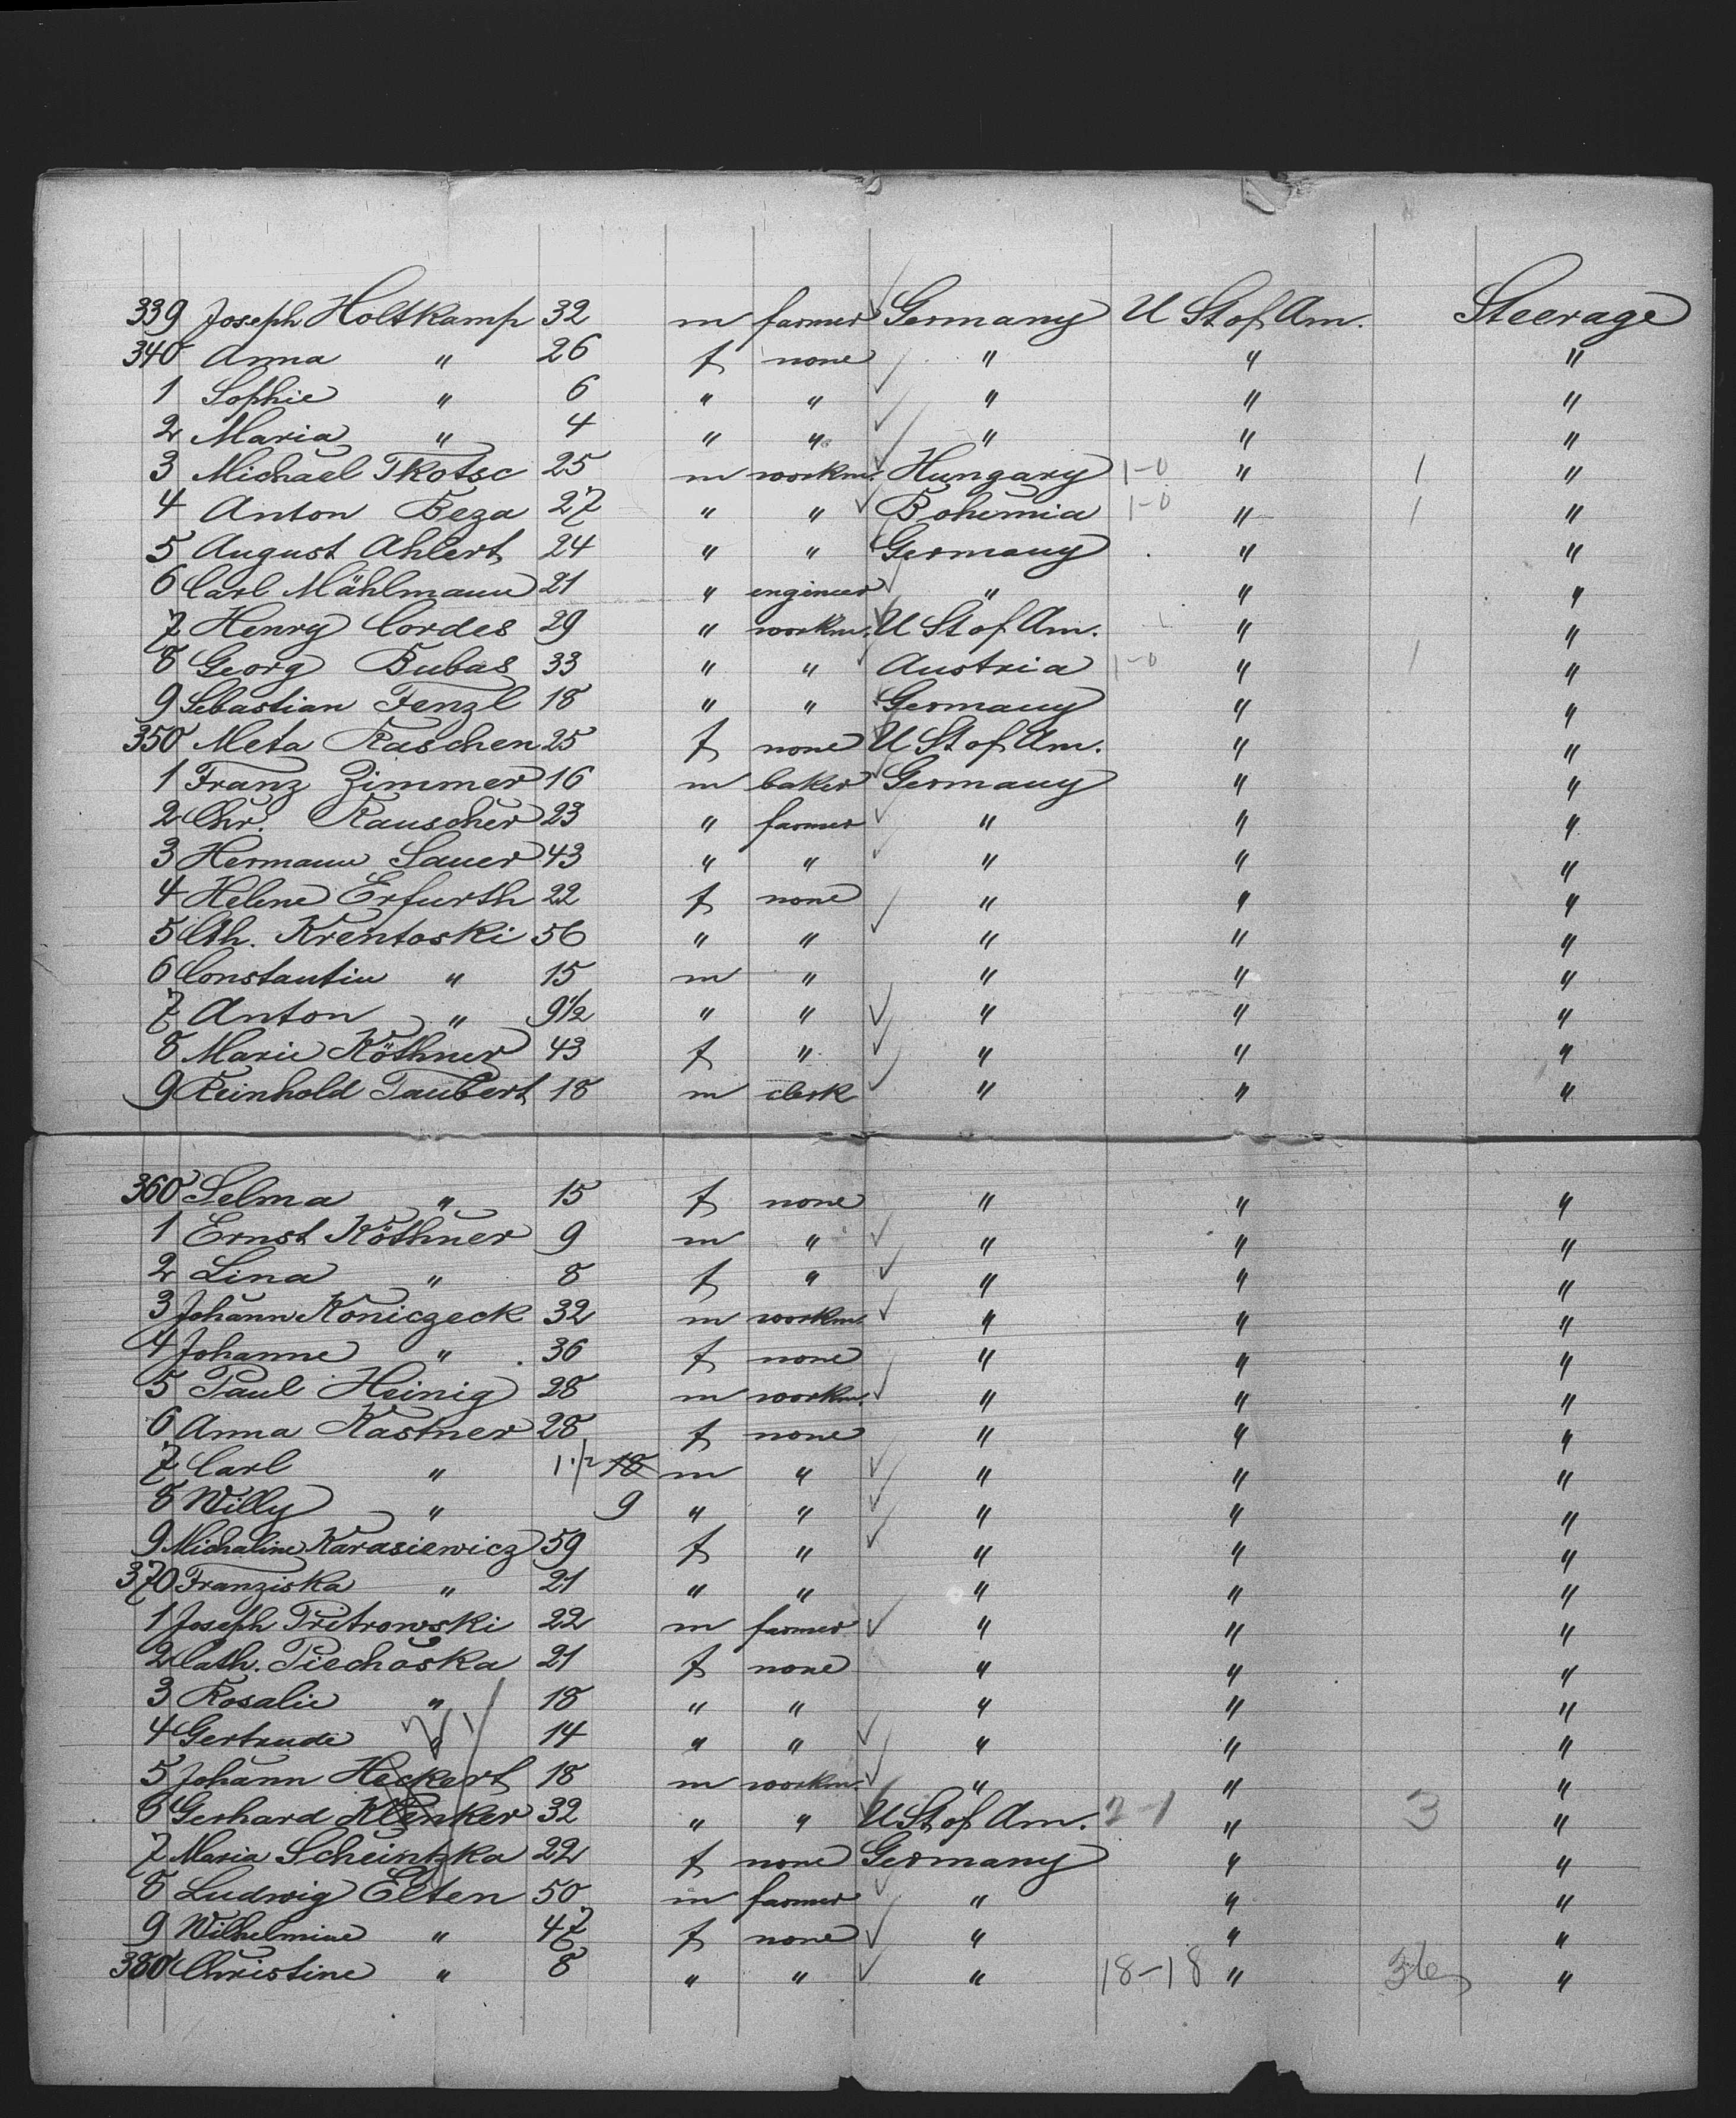 339 Joseph Holtkamp 32 m farmer Germany U St of Am. Steerage
340 Anna " 26 f none " " "
1 Sophie " 6 " " " " "
2 Maria " 4 " " " " "
3 Michael Tkotsc 25 m workm. Hungary 1-0 " 1 "
4 Anton Beza 27 " " Bohemia 1-0 " 1 "
5 August Ahlert 24 " " Germany " "
6 Carl Mählmann 21 " engineer " " "
7 Henry Cordes 29 " workm. U St of Am. " "
8 Georg Bubas 33 " " Austria 1-0 " 1 "
9 Sebastian Fenzl 18 " " Germany " "
350 Meta Raschen 25 f none U St of Am. " "
1 Franz Zimmer 16 m baker Germany " "
2 Chr. Rauscher 23 " farmer " " "
3 Hermann Sauer 43 " " " " "
4 Helene Erfurth 22 f none " " "
5 Cth. Krentoski 56 " " " " "
6 Constantin " 15 m " " " "
7 Anton " 9 1/2 " " " " "
8 Marie Köthner 43 f " " " "
9 Reinhold Taubert 18 m clerk " " "
360 Selma " 15 f none " " "
1 Ernst Köthner 9 m " " " "
2 Lina " 8 f " " " "
3 Johann Koniczeck 32 m workm. " " "
4 Johanne " 36 f none " " "
5 Paul Heinig 28 m workm. " " "
6 Anna Kastner 28 f none " " "
7 Carl " 1 1/2 18 m " " " "
8 Willy " 9 " " " " "
9 Michaline Karasiewicz 59 f " " " "
370 Franziska " 21 " " " " "
1 Joseph Pritrowski 22 m farmer " " "
2 Cath. Piechoska 21 f none " " "
3 Rosalie " 18 " " " " "
4 Gertrude " 14 " " " " "
5 Johann Heckert 18 m workm. " " "
6 Gerhard Klenker 32 " " U St of Am. 2-1 " 3 "
7 Maria Scheintzka 22 f none Germany " "
8 Ludwig Elten 50 m farmer " " "
9 Wilhelmine " 47 f none " " "
380 Christine " 8 " " " 18-18 " 36 "